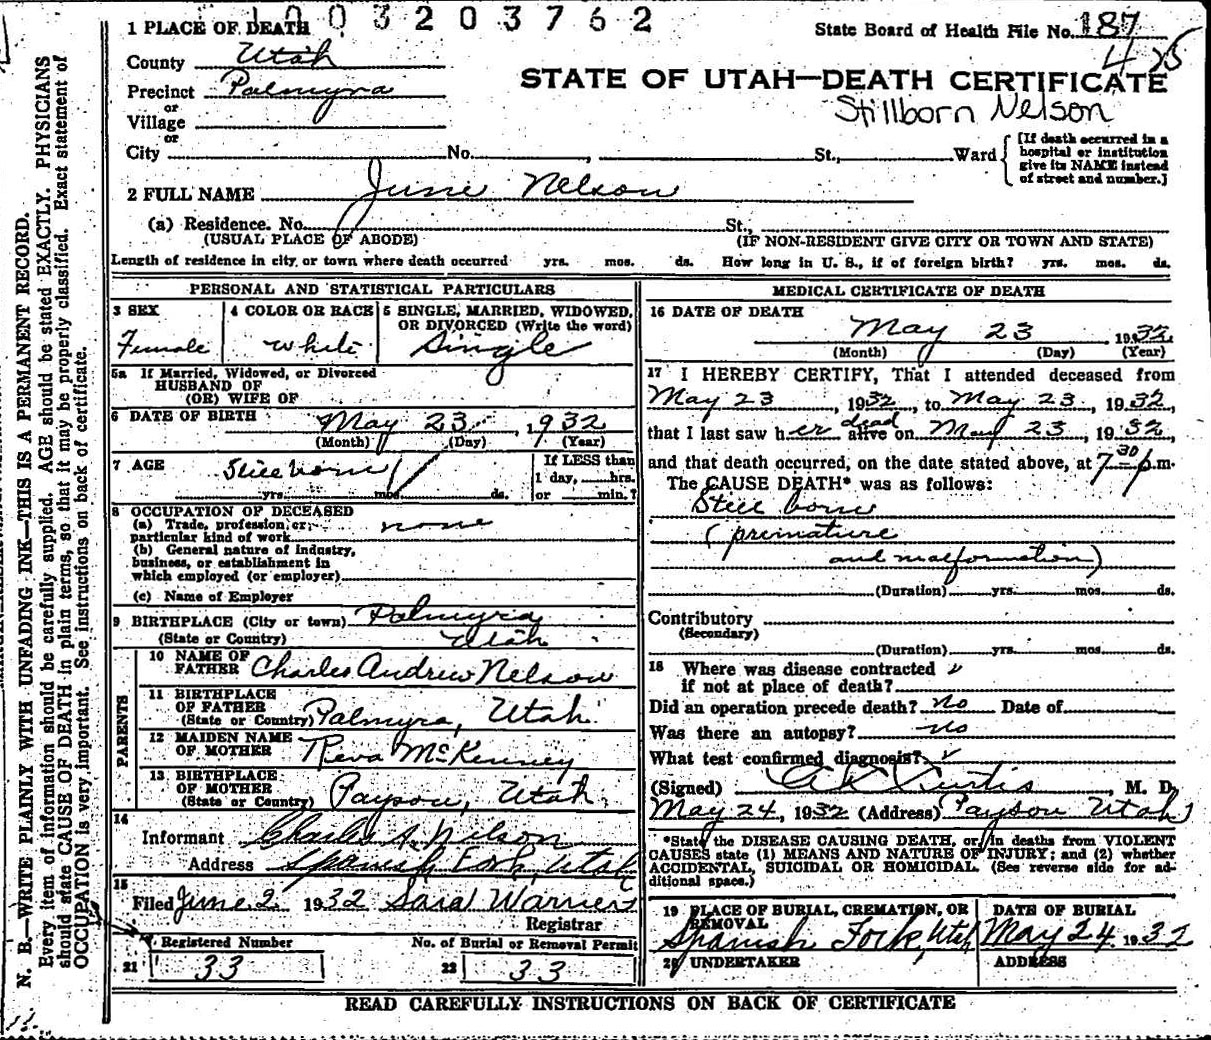 1003203762
1 PLACE OF DEATH
State Board of Health File No. 187
425
County Utah
STATE OF UTAH—DEATH CERTIFICATE
Precinct Palmyra
or
Village
Stillborn Nelson
or
City No. , St., Ward
[If death occurred in a hospital or institution give its NAME instead of street and number.]
2 FULL NAME June Nelson
(a) Residence. No. St.,
(USUAL PLACE OF ABODE) (IF NON-RESIDENT GIVE CITY OR TOWN AND STATE)
Length of residence in city or town where death occurred yrs. mos. ds. How long in U. S., if of foreign birth? yrs. mos. ds.
PERSONAL AND STATISTICAL PARTICULARS
3 SEX
Female
4 COLOR OR RACE
White
5 SINGLE, MARRIED, WIDOWED,
OR DIVORCED (Write the word)
Single
5a If Married, Widowed, or Divorced
HUSBAND OF
(OR) WIFE OF
6 DATE OF BIRTH May 23, 1932
(Month) (Day) (Year)
7 AGE Still born
yrs. mos. ds.
If LESS than
1 day, hrs.
or min.?
8 OCCUPATION OF DECEASED
(a) Trade, profession, or
particular kind of work none
(b) General nature of industry,
business, or establishment in
which employed (or employer)
(c) Name of Employer
9 BIRTHPLACE (City or town) Palmyra
(State or Country) Utah
PARENTS
10 NAME OF
FATHER Charles Andrew Nelson
11 BIRTHPLACE
OF FATHER
(State or Country) Palmyra, Utah
12 MAIDEN NAME
OF MOTHER Reva McKenney
13 BIRTHPLACE
OF MOTHER
(State or Country) Payson, Utah
14
Informant Charles A. Nelson
Address Spanish Fork, Utah
15
Filed June 2 1932 Sara Warner
Registrar
Registered Number
21 33
No. of Burial or Removal Permit
22 33
MEDICAL CERTIFICATE OF DEATH
16 DATE OF DEATH
May 23 1932
(Month) (Day) (Year)
17 I HEREBY CERTIFY, That I attended deceased from
May 23, 1932, to May 23, 1932,
that I last saw her dead alive on May 23, 1932,
and that death occurred, on the date stated above, at 7 30 p.m.
The CAUSE DEATH* was as follows:
Still born
(premature
and malformation)
(Duration) yrs. mos. ds.
Contributory
(Secondary)
(Duration) yrs. mos. ds.
18 Where was disease contracted
if not at place of death?
Did an operation precede death? no Date of
Was there an autopsy? no
What test confirmed diagnosis?
(Signed) A K Curtis, M. D.
May 24, 1932 (Address) Payson Utah
*State the DISEASE CAUSING DEATH, or, in deaths from VIOLENT
CAUSES state (1) MEANS AND NATURE OF INJURY; and (2) whether
ACCIDENTAL, SUICIDAL OR HOMICIDAL. (See reverse side for ad-
ditional space.)
19 PLACE OF BURIAL, CREMATION, OR
REMOVAL
Spanish Fork, Utah
DATE OF BURIAL
May 24 1932
20 UNDERTAKER
ADDRESS
READ CAREFULLY INSTRUCTIONS ON BACK OF CERTIFICATE
N. B.—WRITE PLAINLY WITH UNFADING INK—THIS IS A PERMANENT RECORD.
Every item of information should be carefully supplied. AGE should be stated EXACTLY. PHYSICIANS
should state CAUSE OF DEATH in plain terms, so that it may be properly classified. Exact statement of
OCCUPATION is very important. See instructions on back of certificate.